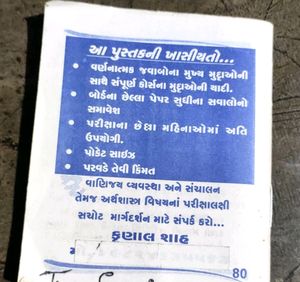 આ પુસ્તકની ખાસીયતો...
• વર્ણનાત્મક જવાબોના મુખ્ય મુદ્દાઓની
સાથે સંપૂર્ણ કોર્સના મુદ્દાઓની યાદી.
• બોર્ડના છેલ્લા પેપર સુધીના સવાલોનો
સમાવેશ
• પરીક્ષાના છેલ્લા મહિનાઓમાં અતિ
ઉપયોગી.
• પોકેટ સાઇઝ
• પરવડે તેવી કિંમત
વાણિજ્ય વ્યવસ્થા અને સંચાલન
તેમજ અર્થશાસ્ત્ર વિષયનાં પરીક્ષાલક્ષી
સચોટ માર્ગદર્શન માટે સંપર્ક કરો...
કુણાલ શાહ
80